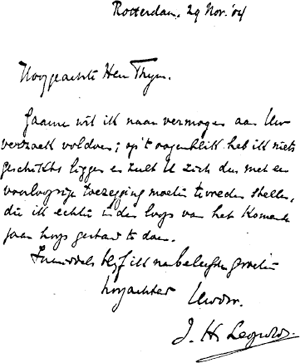 Rotterdam. 29 Nov. '04
Hooggeachte Heer Thijm.
Gaarne wil ik naar vermogen aan Uw
verzoek voldoen; op 't oogenblik heb ik niets
geschikts liggen en zult U zich dus met een
voorloopige toezegging moeten tevreden stellen,
die ik echter in den loop van het komende
jaar hoop gestand te doen.
Inmiddels blijf ik na beleefde groeten
hoogachtend
Uwdw.
J. H. Leopold